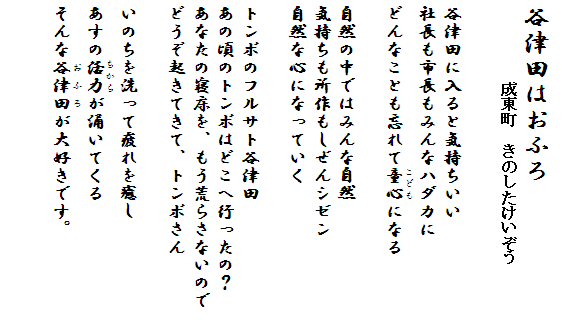 谷津田はおふろ
成東町　きのしたけいぞう
谷津田に入ると気持ちいい
社長も市長もみんなハダカに
どんなことも忘れて童心になる
こども
自然の中ではみんな自然
気持ちも所作もしぜんシゼン
自然な心になっていく
トンボのフルサト谷津田
あの頃のトンボはどこへ行ったの？
あなたの寝床を、もう荒らさないので
どうぞ起きてきて、トンボさん
いのちを洗って疲れを癒し
あすの活力が涌いてくる
ちから
そんな谷津田が大好きです。
おふろ